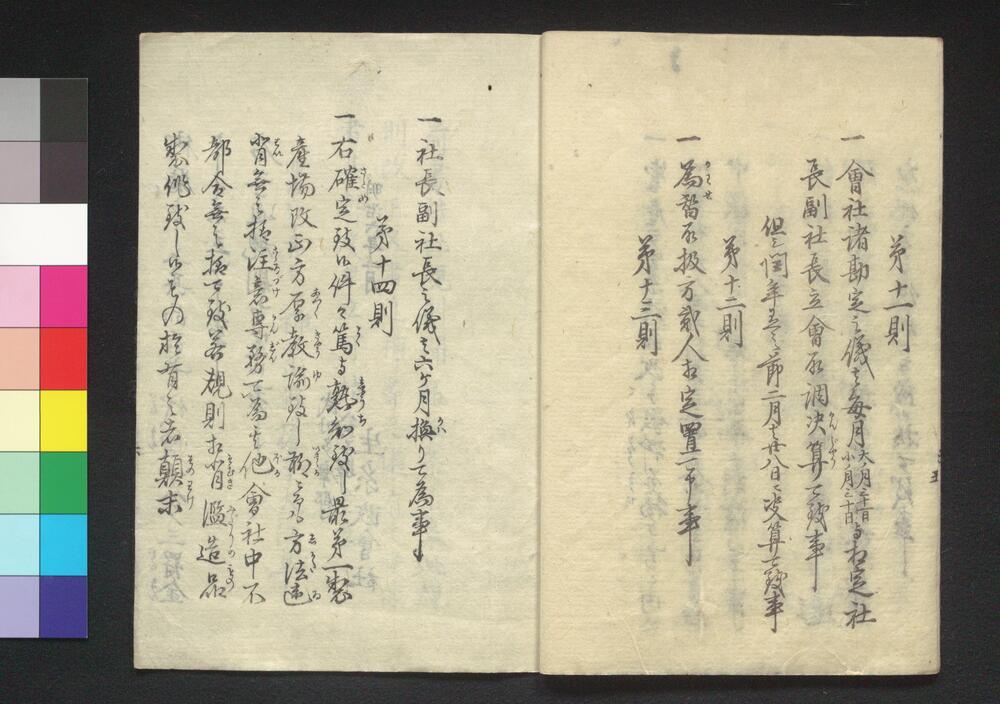 第十一則
一會社諸勘定之儀者毎月大ノ月三十一日小ノ月三十日与相定社
長副社長立會取調決算可致事
但シ閏年者之節二月者廿八日ニ決算可致事
第十二則
一為替取扱方貳人相定置可申事
第十三則
一社長副社長之儀者六ケ月換り可為事
第十四則
一右確定致候件々篤与熟知致し最第一製
産場改正方厚教諭致し聊ニ而も方法違
背無之様注意専務可為其他會社中不
都合無之様可致若規則相背濫造品
製作致し候もの於有之者顛末